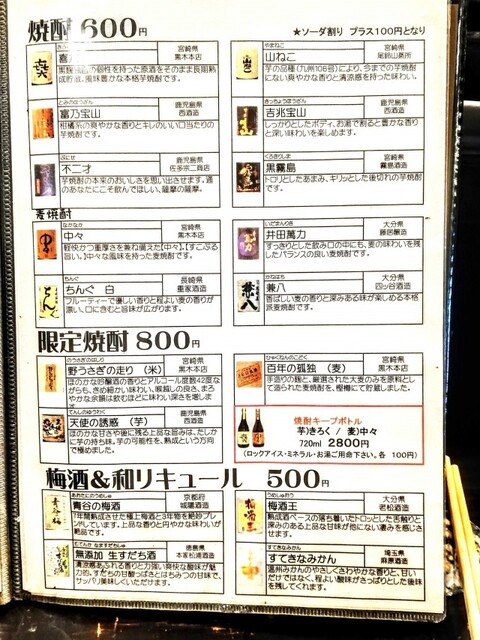 焼酎 600円
★ソーダ割り プラス100円となり
宮崎県
黒木本店
黒麹 の個性を持った原酒をそのまま長期熟
成貯蔵。風味豊かな本格芋焼酎です。
やまねこ
山ねこ
宮崎県
尾鈴山蒸留所
芋の品種(九州108号)により、今までの芋焼酎
にない爽やかな香りと清涼感を持った味わい。
とみのほうざん
富乃宝山
鹿児島県
西酒造
柑橘系の爽やかな香りとキレのいい口当たりの
芋焼酎です。
きっちょうほうざん
吉兆宝山
鹿児島県
西酒造
しっかりとしたボディ、お湯で割ると豊かな香り
と深い味わいを楽しめます。
ぶにせ
不二才
鹿児島県
佐多宗二商店
芋焼酎の本来のおいしさを思い出させます。酒
のあなたにこそ飲んでほしい、薩摩の薩摩。
くろきりしま
黒霧島
宮崎県
霧島酒造
トロリとしたあまみ、キリッとした後切れの芋焼
酎です。
麦焼酎
なかなか
中々
宮崎県
黒木本店
軽快かつ重厚さを兼ね備えた【中々】。【すこぶる
旨い。】【中々な風味を持った麦焼酎です。
いだまんりき
井田萬力
大分県
藤居醸造
すっきりとした飲み口の中にも、麦の味わいを残
したバランスの良い麦焼酎です。
ちんぐ
ちんぐ 白
長崎県
重家酒造
フルーティーで優しい香りと程よい麦の香りが
漂い、口に含むと旨味が広がります。
かねはち
兼八
大分県
四ッ谷酒造
香ばしい麦の香りと深みある味が楽しめる本格
派麦焼酎です。
限定焼酎 800円
のうさぎのはしり
野うさぎの走り (米)
宮崎県
黒木本店
ほのかな吟醸酒の香りとアルコール度数42度な
がらも、きめ細かい味わい、喉越しの良さ、まろ
やかな余韻は飲むほどに味わい深さを増しま
す。
ひゃくねんのこどく
百年の孤独 (麦)
宮崎県
黒木本店
手造りの麹と、厳選された大麦のみを原料とし
て造られた麦焼酎を、樫樽にて貯蔵しました。
てんしのゆうわく
天使の誘惑 (芋)
鹿児島県
西酒造
ほのかな甘さや後に残る上品な旨みは、たしか
に芋の持ち味。芋の可能性を、熟成という方向
で極めました。
焼酎キープボトル
芋)きろく / 麦)中々
720ml 2800円
(ロックアイス・ミネラル・お湯ご用命下さい。各 100円)
梅酒&和リキュール 500円
あおたにのうめしゅ
青谷の梅酒
京都府
城陽酒造
1年間熟成させた極上梅酒と3年物を絶妙ブレ
ンドしています。上品な香りと円やかな味わいが
絶品です。
うめしゅおう
梅酒王
大分県
老松酒造
熟成酒ベースの落ち着いたトロッとした舌触りと
深みのある上品な甘味が他にない凄みを感じさ
せます。
むてんか なますだちしゅ
無添加 生すだち酒
徳島県
本家松浦酒造
清涼感あふれる香りと力強い爽快な酸味が魅
力的。すだちの甘酸っぱさとはちみつの甘味で、
サッパリ美味しくいただけます。
すてきなみかん
すてきなみかん
埼玉県
麻原酒造
温州みかんのやさしくさわやかな香りと、甘い
だけではなく、程よい酸味がさっぱりとした後味
を残してくれます。